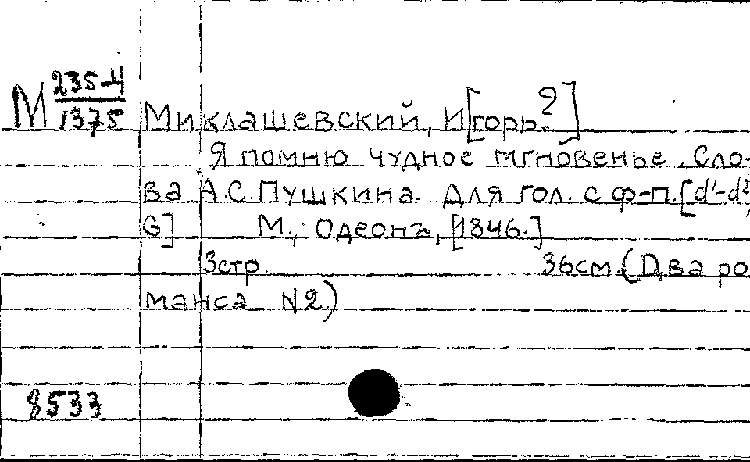 М 235-4
1375
Миклашевский, И[горь?]
Я помню чудное мгновенье. Сло-
ва А.С. Пушкина. Для гол. с ф-п. [d¹-d²
G] М., Одеонъ, [1846.]
3стр. 36см. (Два ро
манса N2)
8533